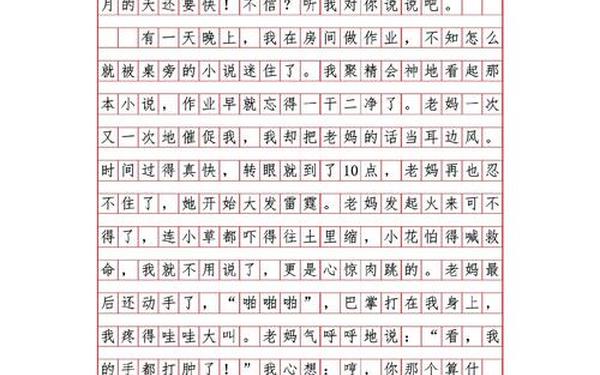 月的天还要快！不信？听我对你说说吧。
有一天晚上，我在房间做作业，不知怎么
就被桌旁的小说迷住了。我聚精会神地看起那
本小说，作业早就忘得一干二净了。老妈一次
又一次地催促我，我却把老妈的话当耳边风。
时间过得真快，转眼就到了10点，老妈再也忍
不住了，她开始大发雷霆。老妈发起火来可不
得了，连小草都吓得往土里缩，小花怕得喊救
命，我就不用说了，更是心惊肉跳的。老妈最
后还动手了，“啪啪啪”，巴掌打在我身上，
我疼得哇哇大叫。老妈气呼呼地说：“看，我
的手都打肿了！”我心想：哼，你那个算什